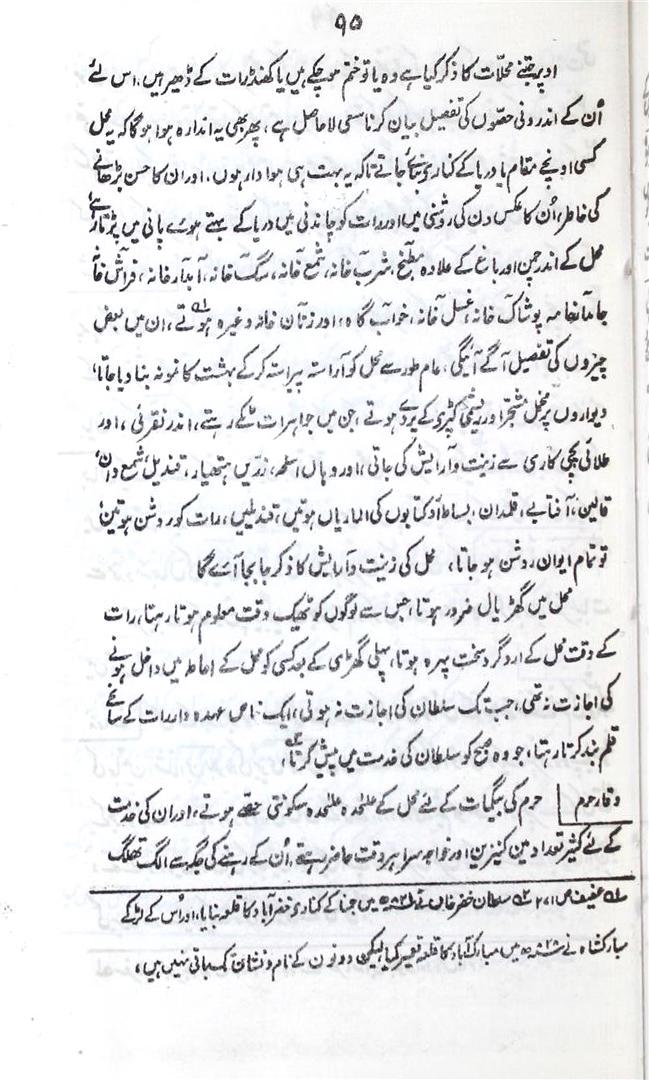 ۹۵
اوپر جتنے محلات کا ذکر کیا ہے وہ یا تو ختم ہو چکے ہیں یا کھنڈرات کے ڈھیر ہیں، اس لئے
اُن کے اندرونی حصوں کی تفصیل بیان کرنا سعی لاحاصل ہے، پھر بھی یہ اندازہ ہوا ہوگا کہ یہ محل
کسی اونچے مقام یا دریا کے کنارے بنائے جاتے تاکہ یہ بہت ہی ہوا دار ہوں، اور ان کا حسن بڑھانے
کی خاطر اُن کا عکس دن کی روشنی میں اور رات کو چاندنی میں دریا کے بہتے ہوئے پانی میں پڑتا رہے
محل کے اندر چمن اور باغ کے علاوہ مطبخ، شربت خانہ، شمع خانہ، سگ خانہ، آبدار خانہ، فراش خانہ
جامہ خانہ پوشاک خانہ، غسل خانہ، خواب گاہ، اور زنان خانہ وغیرہ ہوتے، ان میں بعض
چیزوں کی تفصیل آگے آئیگی، عام طور سے محل کو آراستہ پیراستہ کرکے بہشت کا نمونہ بنا دیا جاتا،
دیواروں پر مخمل مشجر اور ریشمی کپڑی کے پردے ہوتے، جن میں جواہرات ٹنکے رہتے، اندر نقرئی، اور
طلائی پچی کاری سے زینت و آرایش کی جاتی، اور وہاں اسلحہ، زریں ہتھیار، قندیل، شمع دان،
قالین، آفتابے، قلمدان، بساط اور کتابوں کی الماریاں ہوتیں، قندیلیں، رات کو روشن ہوتیں،
تو تمام ایوان، روشن ہو جاتا، محل کی زینت و آرایش کا ذکر جابجا آئے گا
محل میں گھڑیال ضرور ہوتا، جس سے لوگوں کو ٹھیک وقت معلوم ہوتا رہتا، رات
کے وقت محل کے اردگرد سخت پہرہ ہوتا، پہلی گھڑی کے بعد کسی کو محل کے احاطہ میں داخل ہونے
کی اجازت نہ تھی، جب تک سلطان کی اجازت نہ ہوتی، ایک خاص عہدہ دار رات کے سانحے
قلم بند کرتا رہتا، جو وہ صبح کو سلطان کی خدمت میں پیش کرتا،
وقار حرم حرم کی بیگمات کے لئے محل کے علٰحدہ علٰحدہ سکونتی حصے ہوتے، اور ان کی خدمت
کے لئے کثیر تعداد میں کنیزیں اور خواجہ سرا ہر وقت حاضر رہتے، اُن کے رہنے کی جگہ سے الگ تھلگ
لہ عفیف ص ۲۷۱ سلطان خضر خاں نے میں جمنا کے کناری خضر آباد کا قلعہ بنایا، اور اُس کے لڑکے
مبارکشاہ نے میں مبارک آباد کا قلعہ تعمیر کیا لیکن دونوں کے نام و نشان باقی نہیں ہیں،